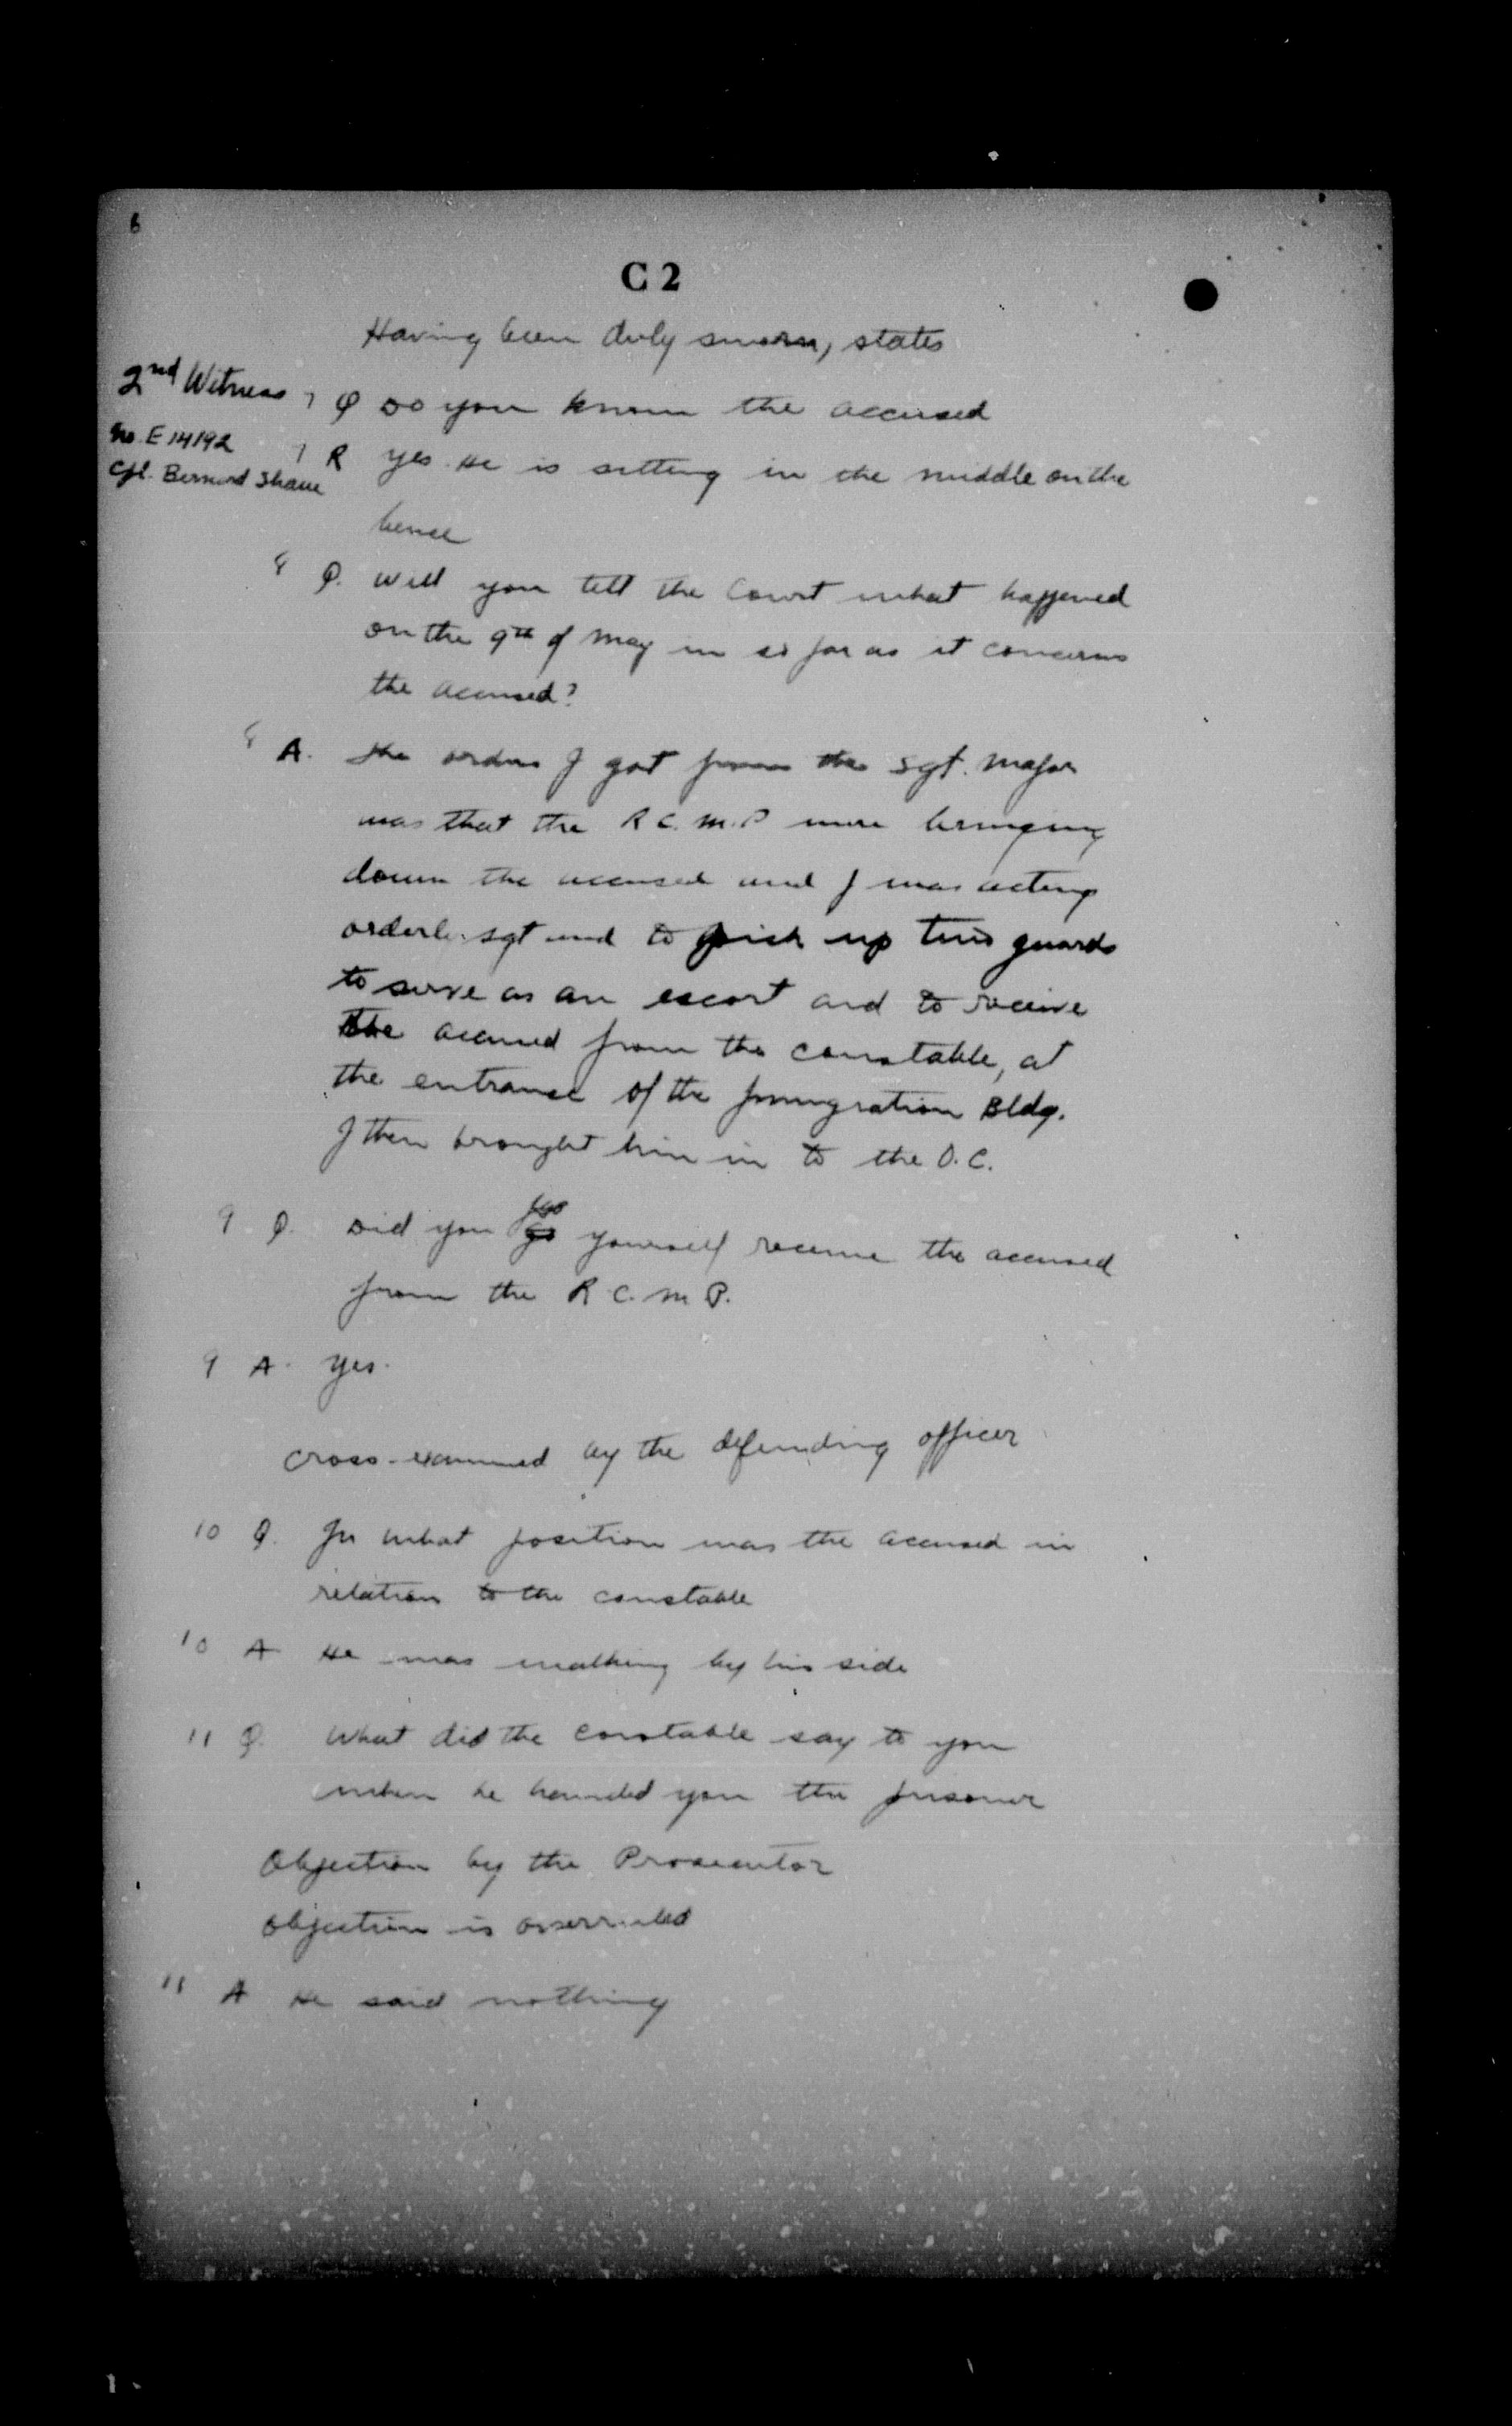 6
C 2
Having been duly sworn, states
2nd Witness
No. E 14192
Cpl. Bernard Shane
7 Q Do you know the accused
7 R yes. He is sitting in the middle on the
bence
8 Q. Will you tell the Court what happened
on the 9th of May in so far as it concerns
the accused?
8 A. The orders I got from the Sgt. Major
was that the R.C.M.P were bringing
down the accused and I was acting
orderly sgt and to pick up two guards
to serve as an escort and to receive
the accused from the constable, at
the entrance of the Immigration Bldg.
I then brought him in to the O.C.
9 Q. Did you yourself receive the accused
from the R.C.M.P.
9 A. Yes.
Cross-examined by the defending officer
10 Q. In what position was the accused in
relation to the constable
10 A He was walking by his side
11 Q. What did the constable say to you
when he handed you the prisoner
Objection by the Prosecutor
Objection is overruled
11 A He said nothing